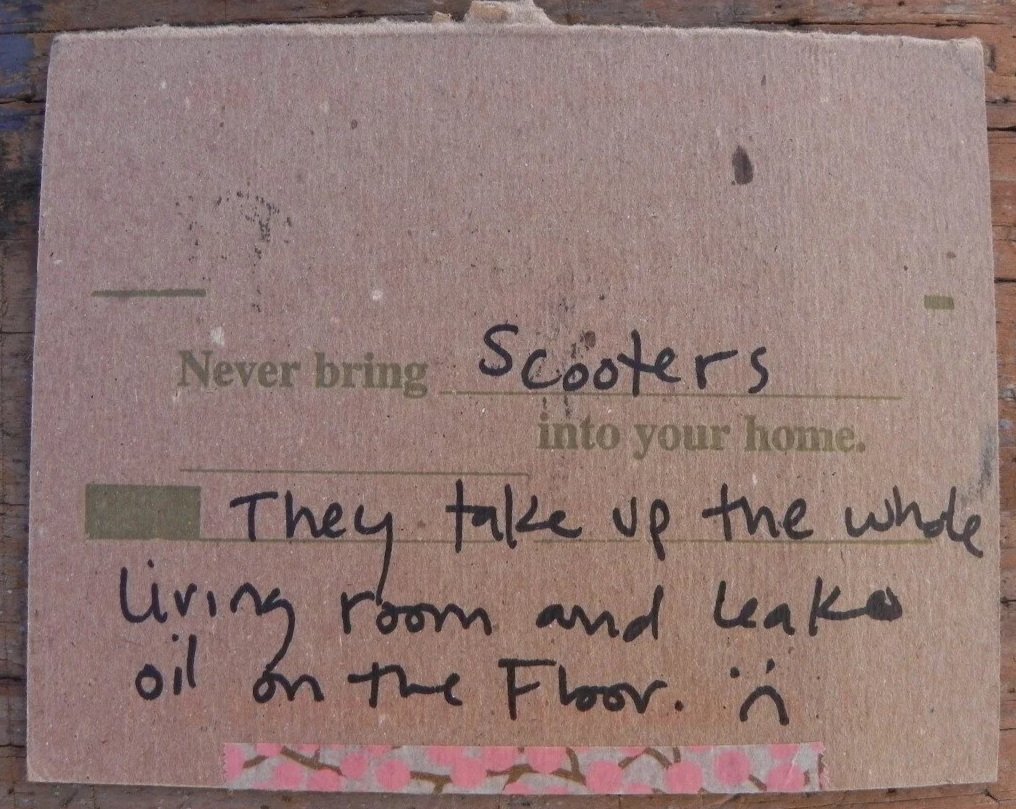 Never bring Scooters
into your home.
They take up the whole
living room and leak
oil on the Floor. :(